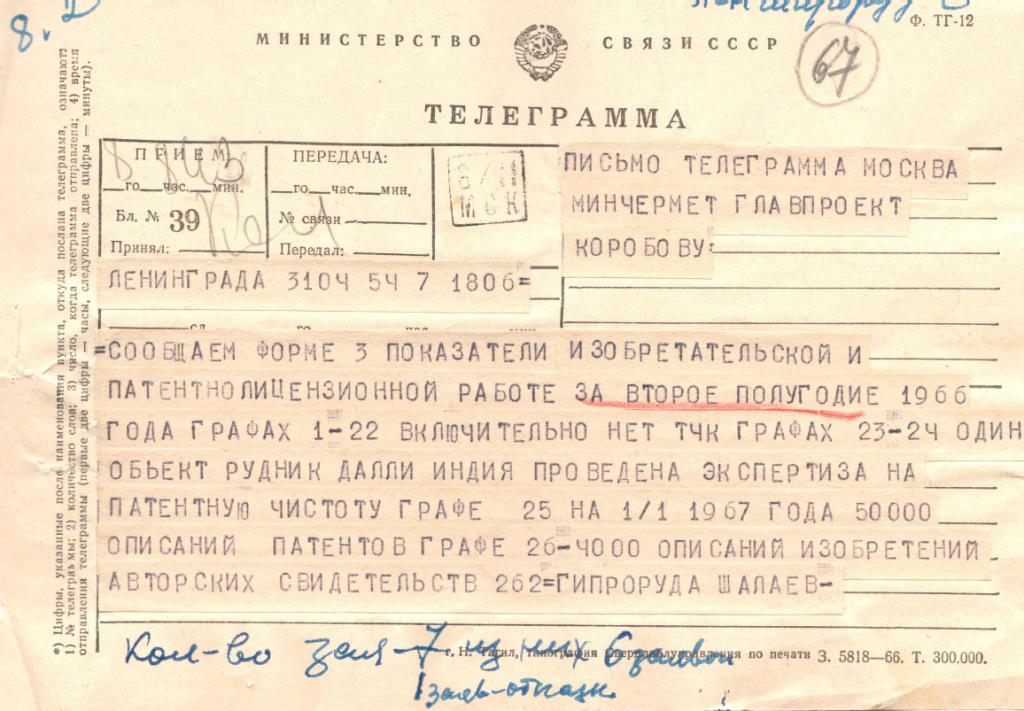 8.
Ф. ТГ-12
МИНИСТЕРСТВО СВЯЗИ СССР
67
ТЕЛЕГРАММА
*) Цифры, указанные после наименования пункта, откуда послана телеграмма, означают:
1) № телеграммы; 2) количество слов; 3) число, когда телеграмма отправлена; 4) время
отправления телеграммы (первые две цифры — часы, следующие две цифры — минуты).
ПРИЕМ
го час. мин.
Бл. № 39
Принял:
ПЕРЕДАЧА:
го час. мин.
№ связи
Передал:
МСК
ПИСЬМО ТЕЛЕГРАММА МОСКВА
МИНЧЕРМЕТ ГЛАВПРОЕКТ
КОРОБОВУ
ЛЕНИНГРАДА 3104 54 7 1806=
=СООБЩАЕМ ФОРМЕ 3 ПОКАЗАТЕЛИ ИЗОБРЕТАТЕЛЬСКОЙ И
ПАТЕНТНОЛИЦЕНЗИОННОЙ РАБОТЕ ЗА ВТОРОЕ ПОЛУГОДИЕ 1966
ГОДА ГРАФАХ 1-22 ВКЛЮЧИТЕЛЬНО НЕТ ТЧК ГРАФАХ 23-24 ОДИН
ОБЬЕКТ РУДНИК ДАЛЛИ ИНДИЯ ПРОВЕДЕНА ЭКСПЕРТИЗА НА
ПАТЕНТНУЮ ЧИСТОТУ ГРАФЕ 25 НА 1/1 1967 ГОДА 50000
ОПИСАНИЙ ПАТЕНТОВ ГРАФЕ 26-4000 ОПИСАНИЙ ИЗОБРЕТЕНИЙ
АВТОРСКИХ СВИДЕТЕЛЬСТВ 262=ГИПРОРУДА ШАЛАЕВ-
г. Н. Тагил, типография Свердоблуправления по печати З. 5818—66. Т. 300.000.
Кол-во заяв - 7 из них 6
1 заяв-отказн.